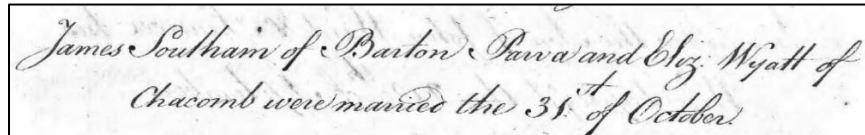 James Southam of Barton Parva and Eliz: Wyatt of
Chacomb were married the 31.st of October.